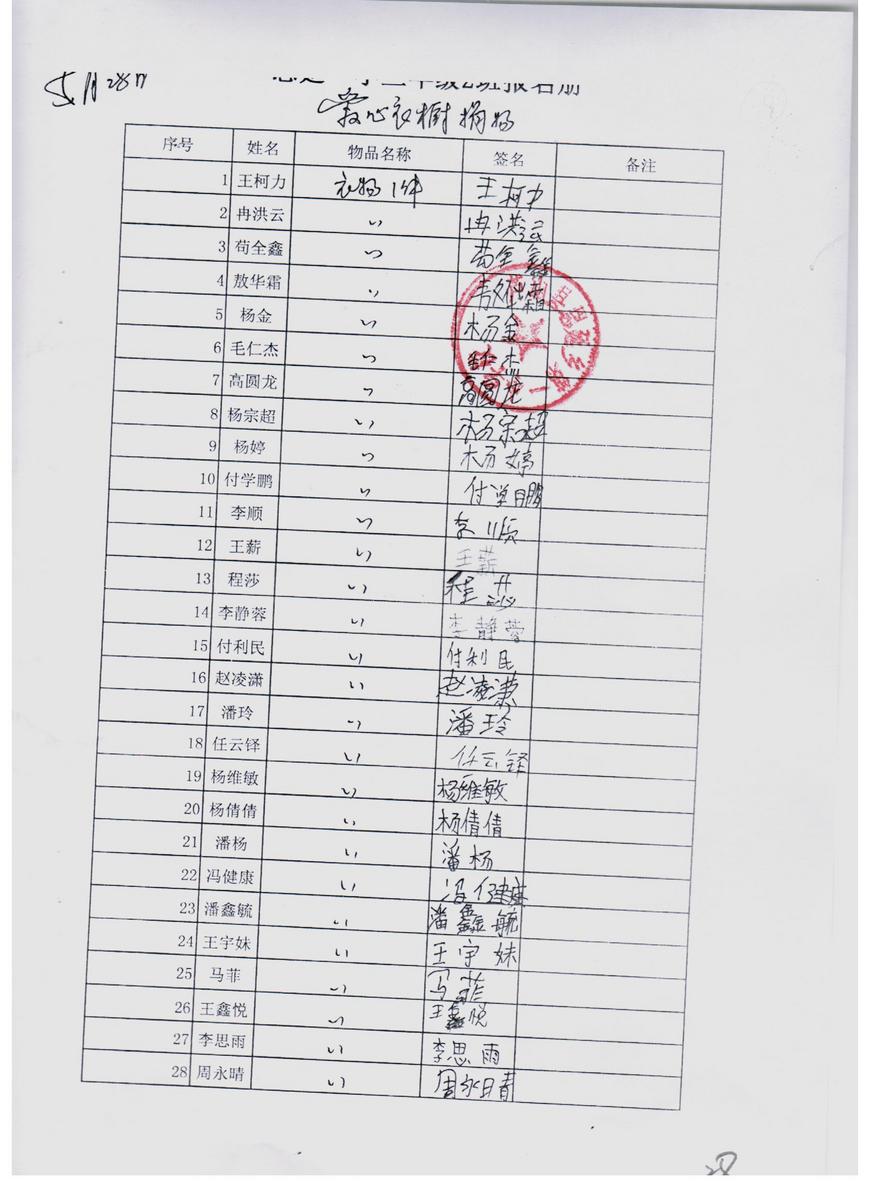 5月28日
级2班报名册
爱心衣橱捐物
序号 姓名 物品名称 签名 备注
1 王柯力 衣物1件 王柯力
2 冉洪云 〃 冉洪云
3 苟全鑫 〃 苟全鑫
4 敖华霜 〃 敖华霜
5 杨金 〃 杨金
6 毛仁杰 〃 毛仁杰
7 高圆龙 〃 高圆龙
8 杨宗超 〃 杨宗超
9 杨婷 〃 杨婷
10 付学鹏 〃 付学鹏
11 李顺 〃 李顺
12 王薪 〃 王薪
13 程莎 〃 程莎
14 李静蓉 〃 李静蓉
15 付利民 〃 付利民
16 赵凌潇 〃 赵凌潇
17 潘玲 〃 潘玲
18 任云铎 〃 任云铎
19 杨维敏 〃 杨维敏
20 杨倩倩 〃 杨倩倩
21 潘杨 〃 潘杨
22 冯健康 〃 冯健康
23 潘鑫毓 〃 潘鑫毓
24 王宇妹 〃 王宇妹
25 马菲 〃 马菲
26 王鑫悦 〃 王鑫悦
27 李思雨 〃 李思雨
28 周永晴 〃 周永晴
28